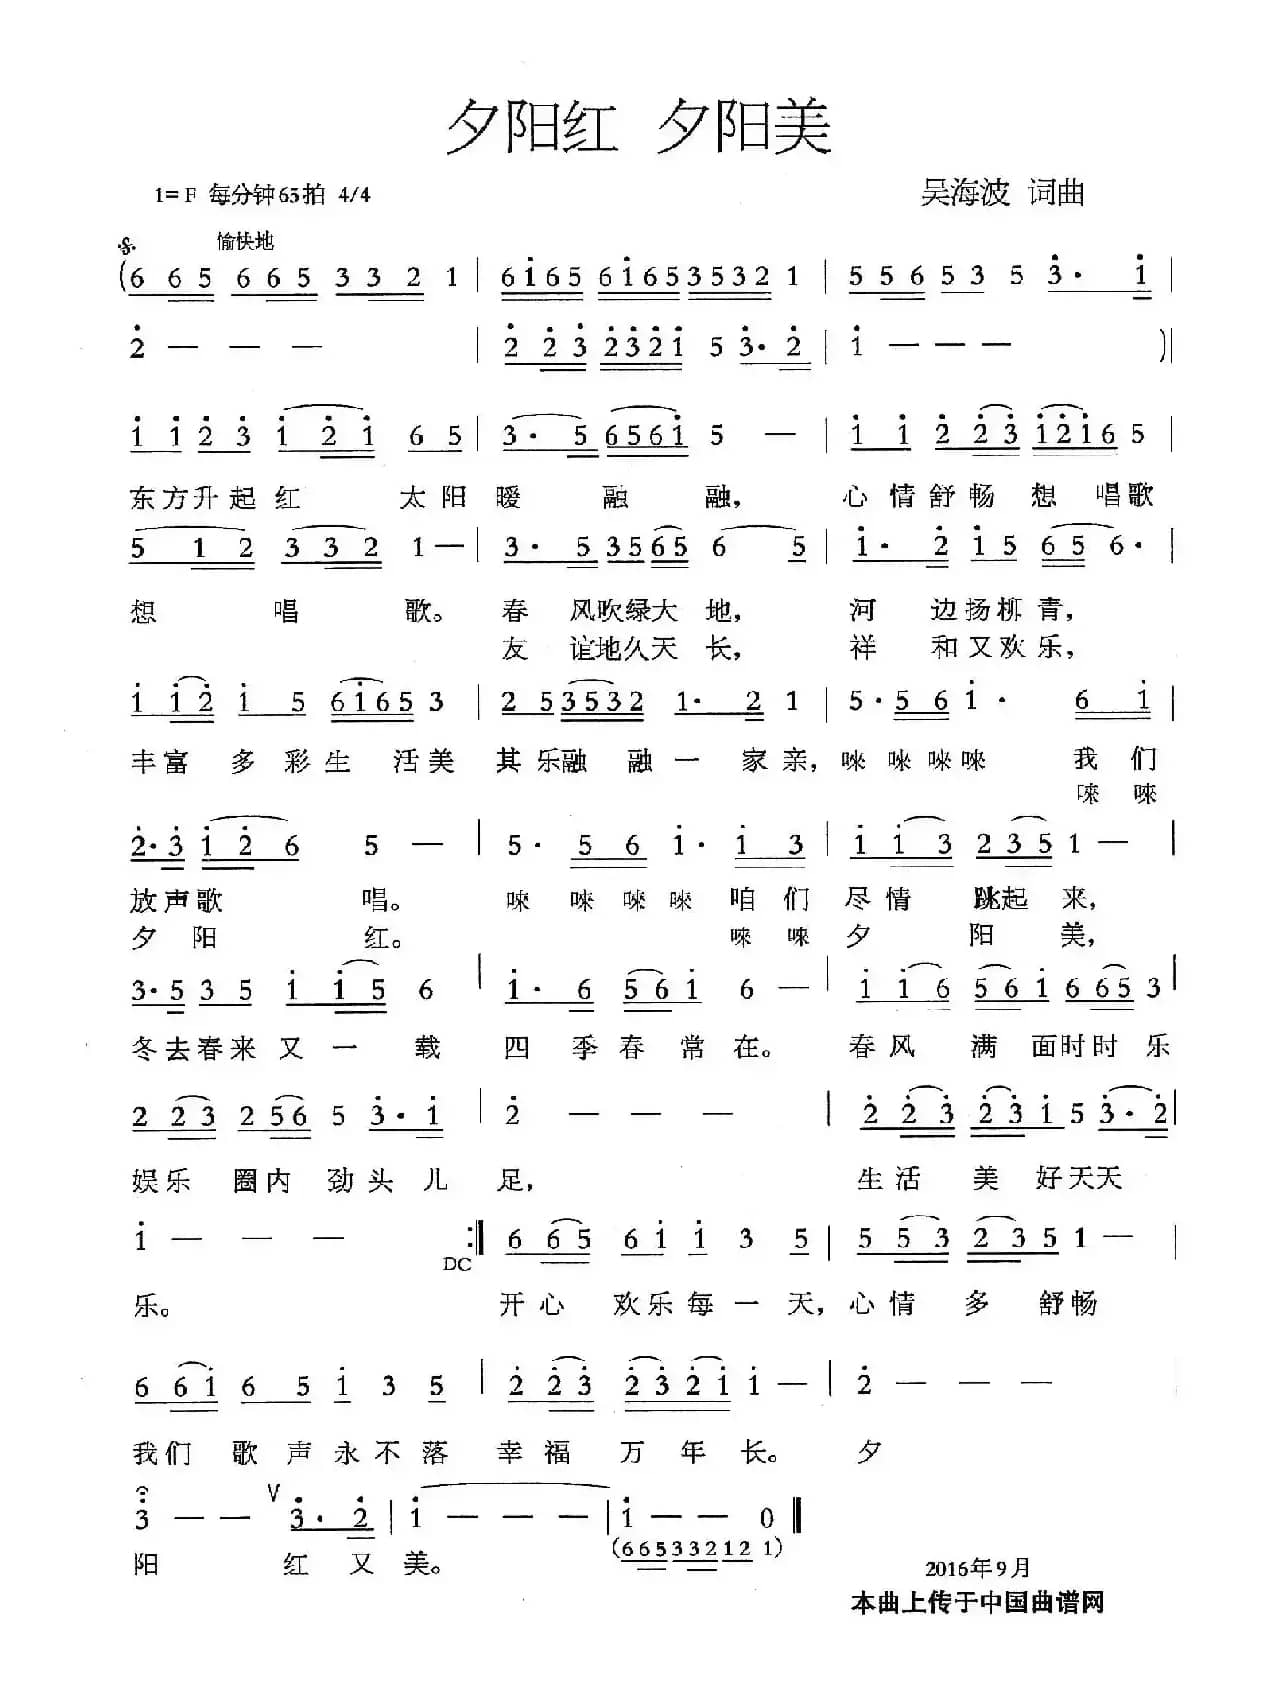 夕阳红 夕阳美
1=F 每分钟65拍 4/4 吴海波 词曲
愉快地
(6 65 665 332 1 | 6i65 6i653532 1 | 55653 5 3· i |
2 — — — | 2 23 2321 5 3· 2 | i — — — )|
i i 2 3 i 2 i 6 5 | 3· 5 656i 5 — | i i 2 23 i2i6 5
东方升起红 太阳 暖 融 融， 心 情舒畅 想 唱歌
5 1 2 3 3 2 1 — | 3· 5 3565 6 5 | i· 2 i5 65 6· |
想 唱 歌。 春 风吹绿大 地， 河 边扬柳 青，
友 谊地久天 长， 祥 和又欢乐，
i i2 i 5 6i65 3 | 2 53532 1· 2 1 | 5·56 i· 6 i |
丰富 多 彩生 活美 其乐融 融一 家亲，唻 唻唻唻 我们
唻 唻
2·3 i 2 6 5 — | 5· 5 6 i· i 3 | i i 3 235 1 — |
放声歌 唱。 唻 唻 唻 唻 咱 们 尽情 跳起 来，
夕 阳 红。 唻 唻 夕 阳 美，
3·5 3 5 i i5 6 | i· 6 56i 6 — | i i 6 56i 665 3
冬去春来 又 一 载 四 季春 常 在。 春风 满 面时时 乐
2 23 256 5 3· i | 2 — — — | 2 23 23i 5 3·2|
娱乐 圈内 劲头儿 足， 生活 美 好天天
i — — — :‖ 6 65 6 i i 3 5 | 5 53 235 1 — |
DC
乐。 开心 欢乐每一 天，心情 多 舒畅
6 6i 6 5 i 3 5 | 2 23 232i i — | 2 — — —
我们 歌 声永不落 幸福 万 年 长。 夕
3 — — V 3· 2 | i — — — | i — — 0 ‖
(665332121)
阳 红 又 美。
2016年9月
本曲上传于中国曲谱网